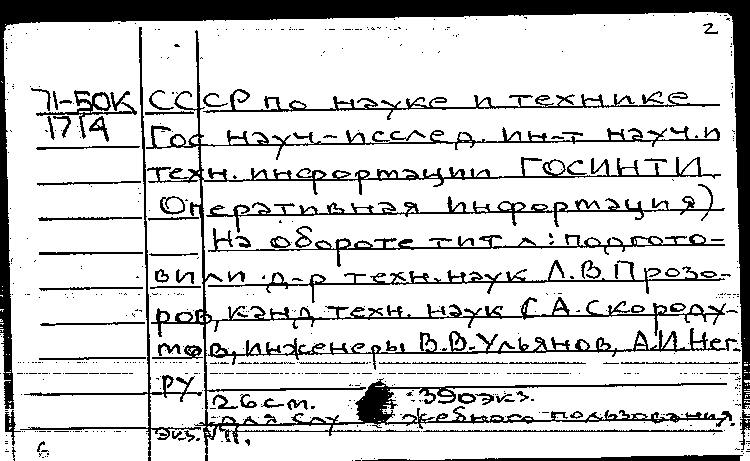 2
71-БОК СССР по науке и технике
1714 Гос науч.-исслед. ин-т науч. и
техн. информации ГОСИНТИ.
Оперативная информация)
На обороте тит л: подгото-
вили д-р техн. наук Л.В. Прозо-
ров, канд. техн. наук С А. Скороду-
мов, инженеры В.В. Ульянов, А.И. Нег.
РУ
26 см. 390 экз.
для служебного пользования.
экз. № 11.
6